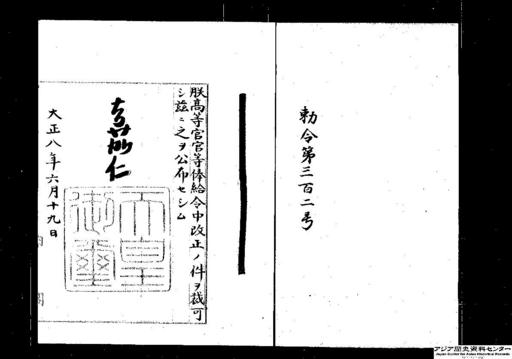 勅令第三百二号
朕高等官官等俸給令中改正ノ件ヲ裁可
シ茲ニ之ヲ公布セシム
嘉仁
天皇
御璽
大正八年六月十九日
内 閣
アジア歴史資料センター
Japan Center for Asian Historical Records